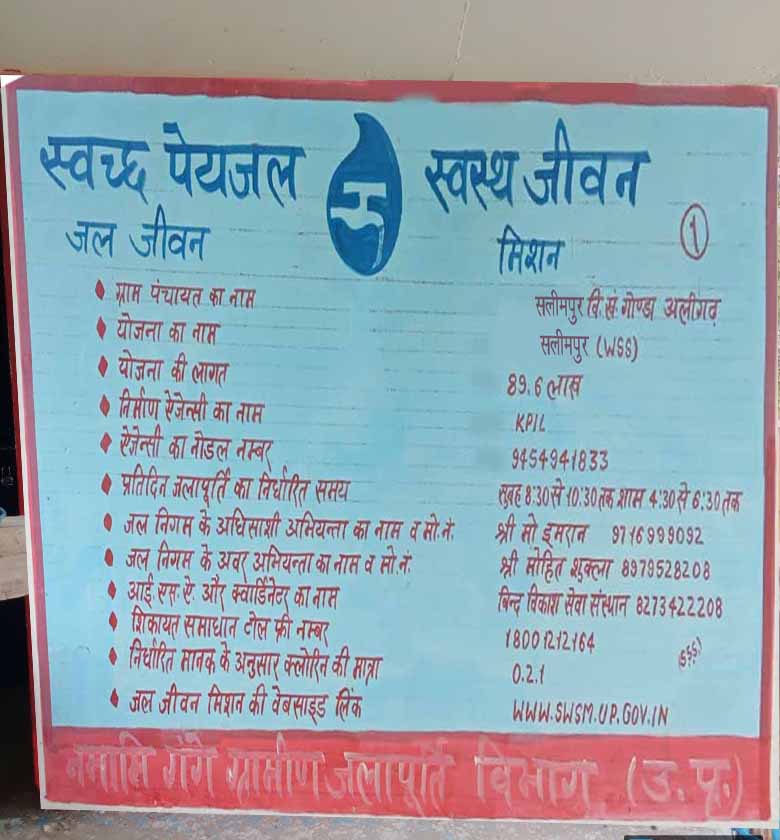 स्वच्छ पेयजल स्वस्थ जीवन
जल जीवन मिशन १
ग्राम पंचायत का नाम सलीमपुर वि.खं. गोण्डा अलीगढ़
योजना का नाम सलीमपुर (WSS)
योजना की लागत 89.6 लाख
निर्माण ऐजेन्सी का नाम KPIL
ऐजेन्सी का नोडल नम्बर 9454941833
प्रतिदिन जलापूर्ति का निर्धारित समय सुबह 8:30 से 10:30 तक शाम 4:30 से 6:30 तक
जल निगम के अधिसाशी अभियन्ता का नाम व मो.नं. श्री मो इमरान 9716999092
जल निगम के अवर अभियन्ता का नाम व मो.नं. श्री मोहित शुक्ला 8979528208
आई.एस.ऐ. और क्वार्डिनेटर का नाम बिन्द विकाश सेवा संस्थान 8273422208
शिकायत समाधान टोल फ्री नम्बर 18001212164
निर्धारित मानक के अनुसार क्लोरिन की मात्रा 0.2.1
जल जीवन मिशन की वेबसाइड लिंक WWW.SWSM.UP.GOV.IN
नमामि गंगे ग्रामीण जलापूर्ति विभाग (उ.प्र.)